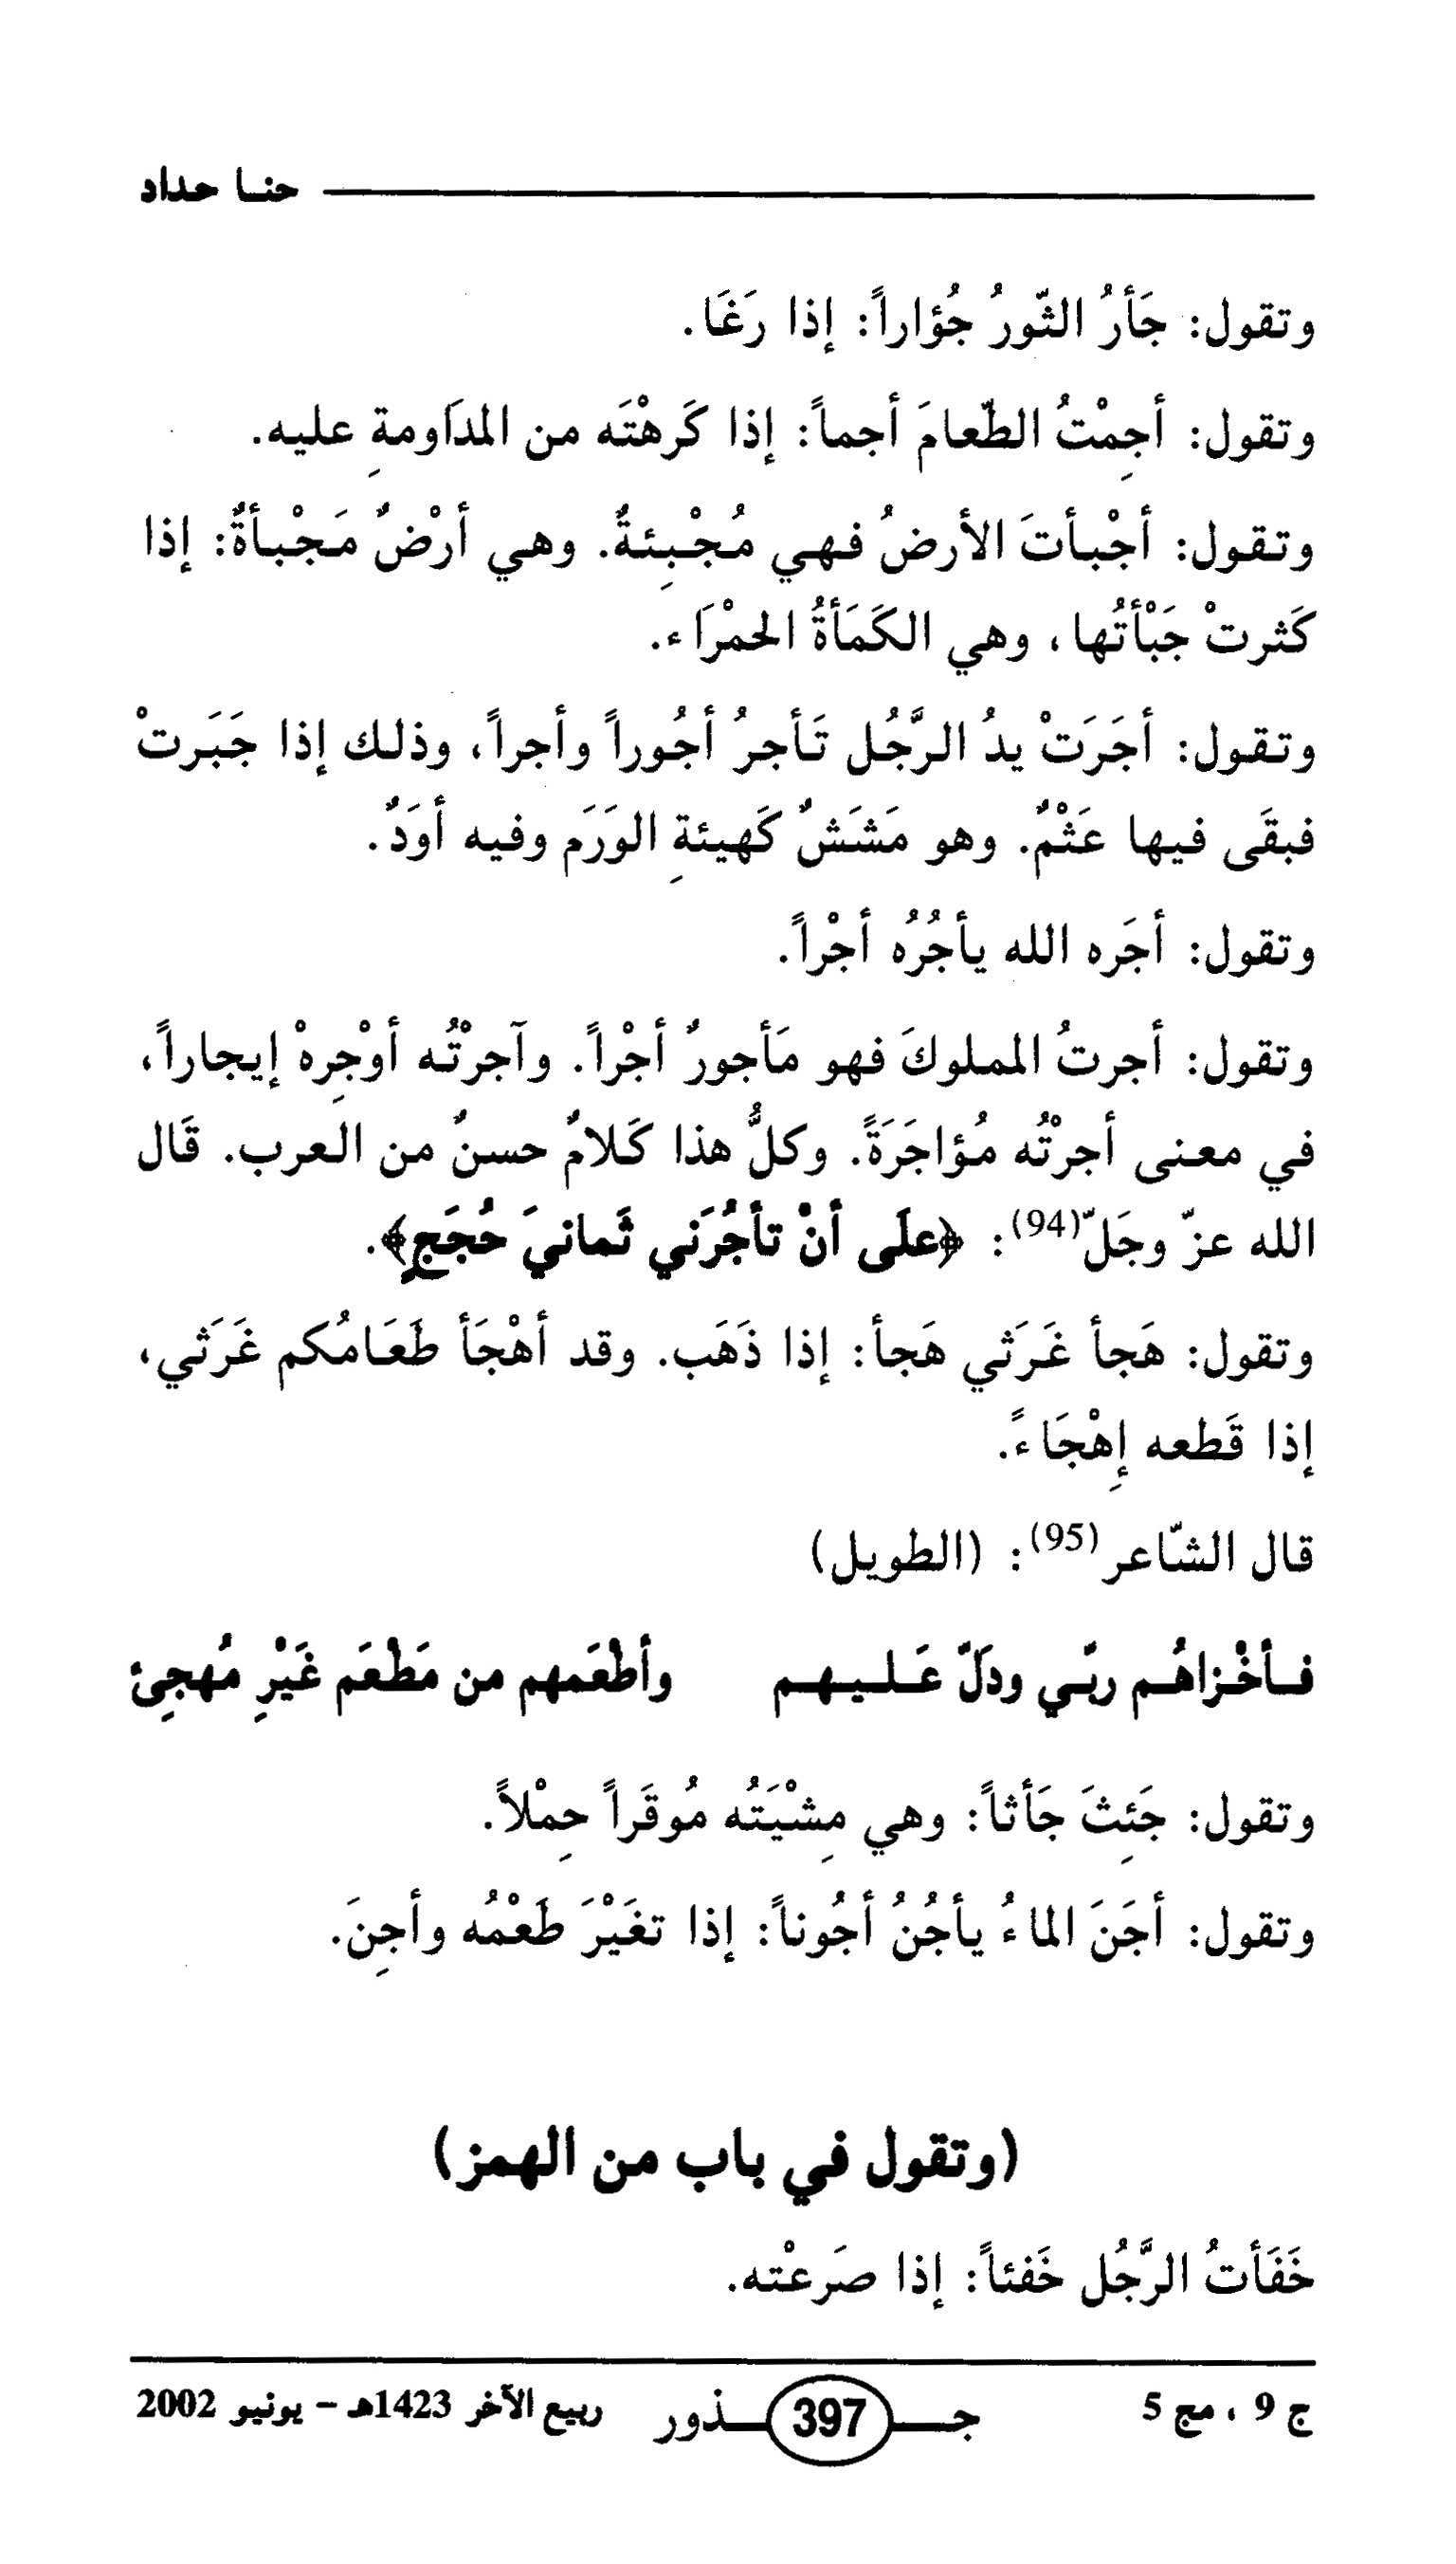 حنا حداد
وتقول: جَأرُ الثّورُ جُؤاراً: إذا رَغَا.
وتقول: أجِمْتُ الطّعامَ أجماً: إذا كَرهْتَه من المداَومةِ عليه.
وتقول: أجْبأتَ الأرضُ فهي مُجْبِئةٌ. وهي أرْضٌ مَجْبأةٌ: إذا
كَثرتْ جَبْأتُها، وهي الكَمَأةُ الحمْرَاء.
وتقول: أجَرَتْ يدُ الرَّجُل تَأجرُ أجُوراً وأجراً، وذلك إذا جَبَرتْ
فبقَى فيها عَثْمٌ. وهو مَشَشٌ كَهيئةِ الوَرَم وفيه أوَدٌ.
وتقول: أجَره الله يأجُرُه أجْراً.
وتقول: أجرتُ المملوكَ فهو مَأجورٌ أجْراً. وآجرْتُه أوْجِرهْ إيجاراً،
في معنى أجرْتُه مُؤاجَرَةً. وكلُّ هذا كَلامٌ حسنٌ من العرب. قَال
الله عزّ وجَلّ(94): ﴿علَى أنْ تأجُرَني ثَمانيَ حُجَجٍ﴾.
وتقول: هَجأ غَرَثي هَجأ: إذا ذَهَب. وقد أهْجَأ طَعَامُكم غَرَثي،
إذا قَطعه إِهْجَاءً.
قال الشّاعر(95): (الطويل)
فأخْزاهُم ربّي ودَلّ عَليهم وأطْعَمهم من مَطْعَم غَيْرِ مُهجِئ
وتقول: جَئِثَ جَأثاً: وهي مِشْيَتُه مُوقَراً حِمْلاً.
وتقول: أجَنَ الماءُ يأجُنُ أجُوناً: إذا تغَيْرَ طَعْمُه وأجِنَ.
(وتقول في باب من الهمز)
خَفَأتُ الرَّجُل خَفئاً: إذا صَرعْته.
ج 9 ، مج 5 جـــذور 397 ربيع الآخر 1423هـ - يونيو 2002